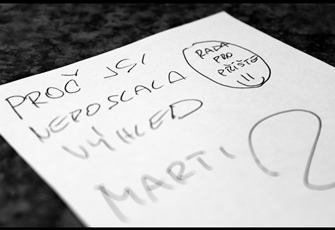 PROČ JSI
NEPOSLALA
VÝHLED
MARTI
RADA
PRO
PŘÍŠTĚ
!!!